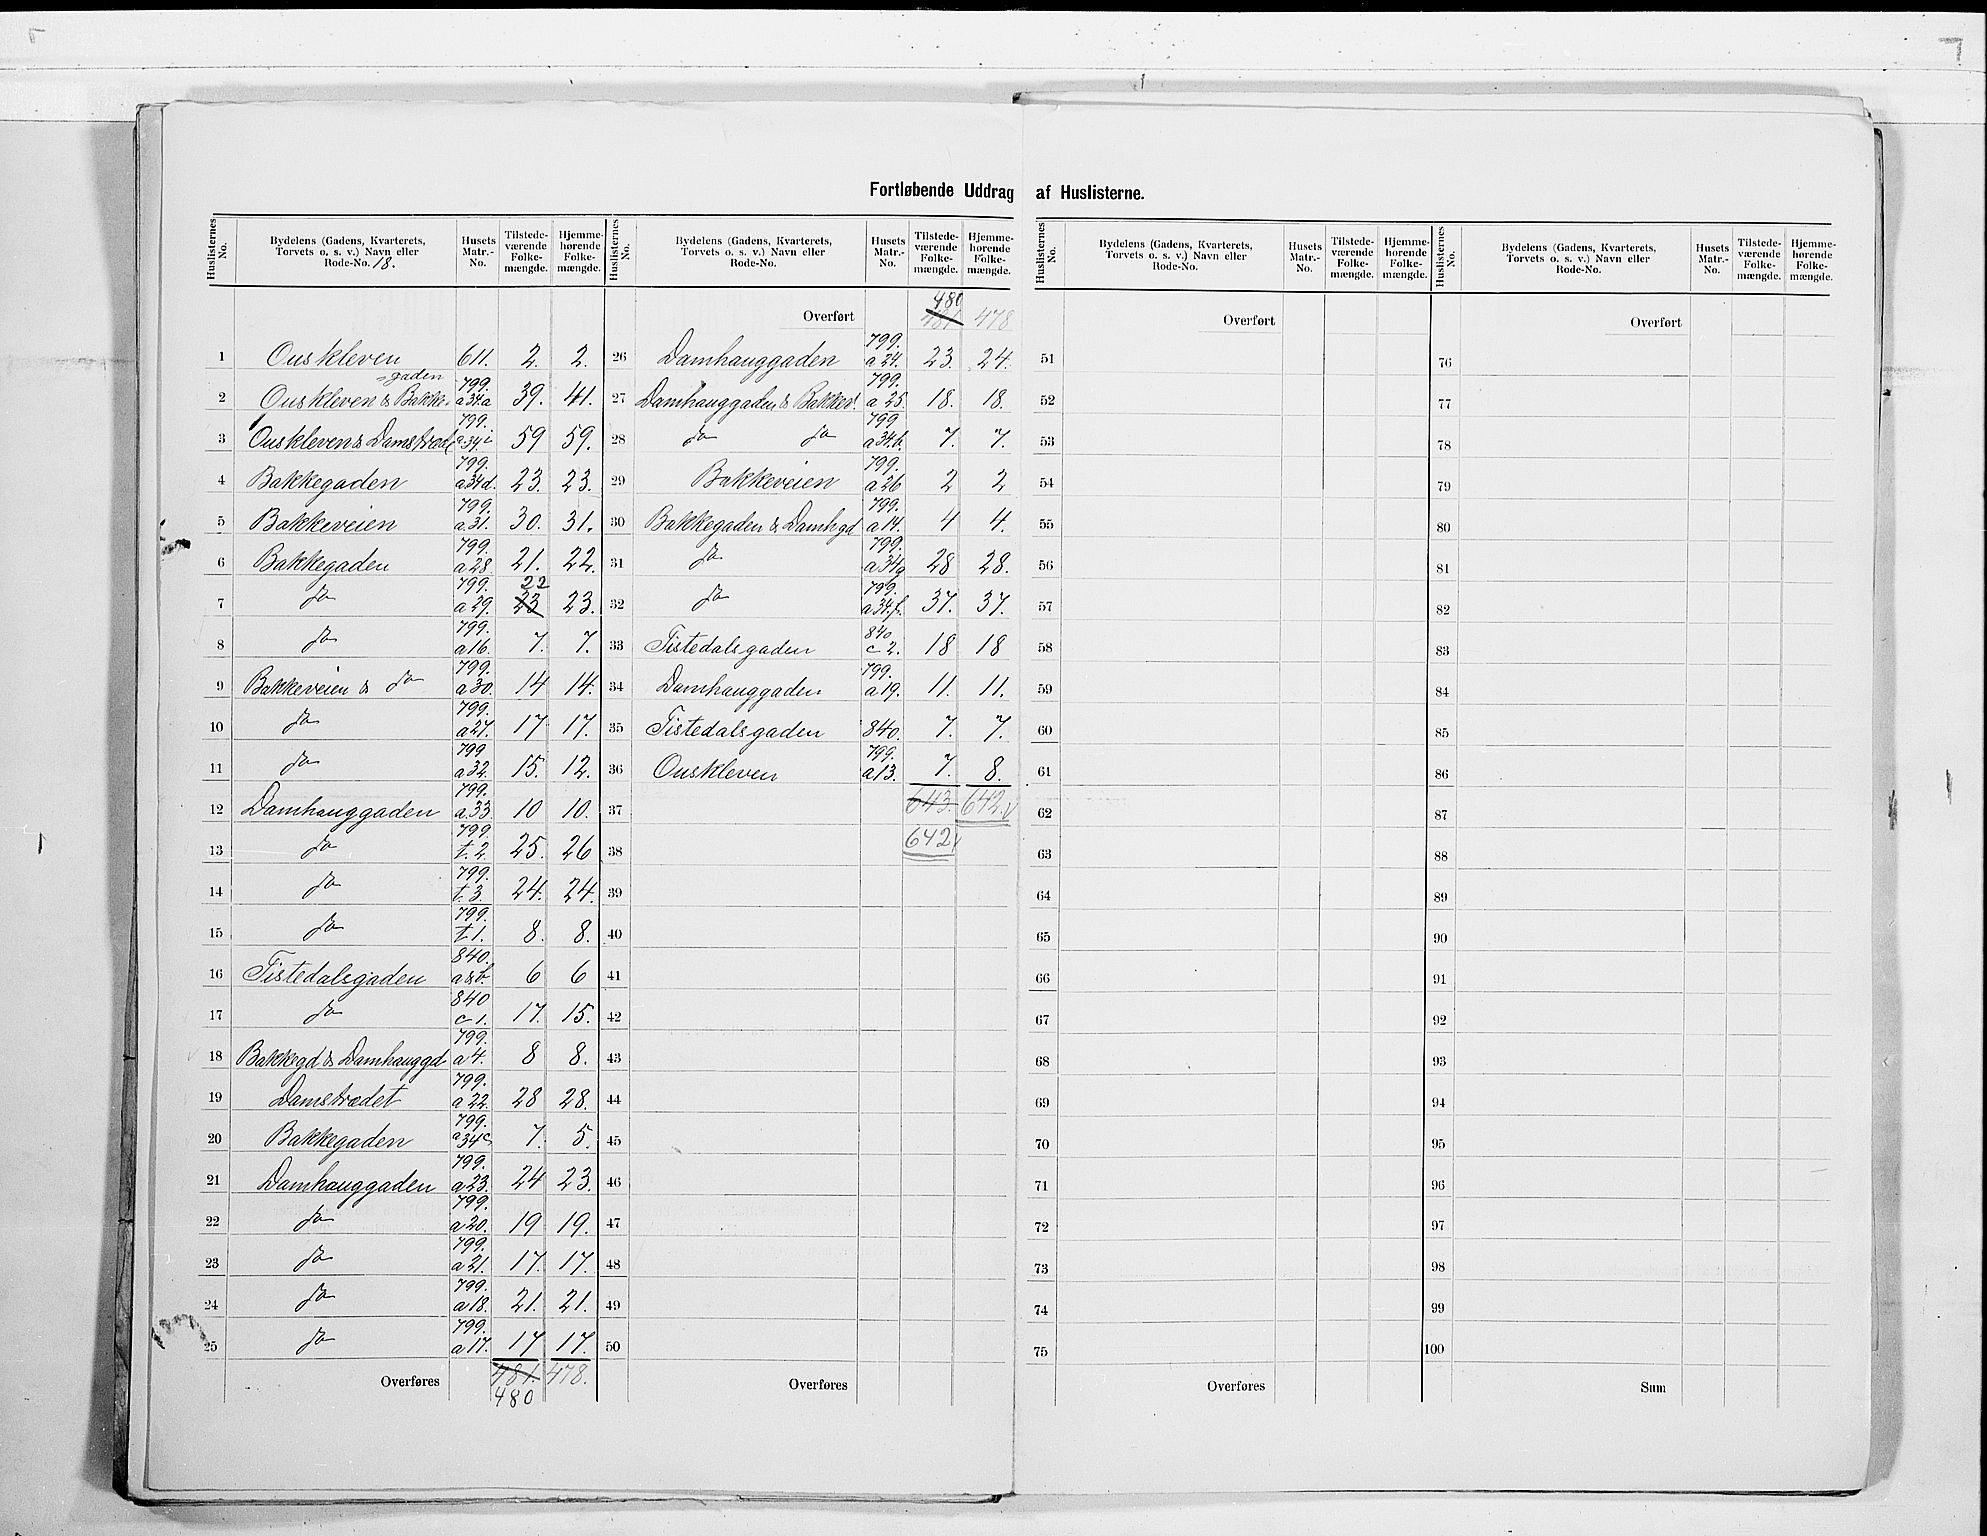 Fortløbende Uddrag af Huslisterne.
Huslisternes No. | Bydelens (Gadens, Kvarterets, Torvets o. s. v.) Navn eller Rode-No. 18. | Husets Matr.-No. | Tilstedeværende Folkemængde. | Hjemmehørende Folkemængde.
1 Ouskleven 611. 2. 2.
2 Ouskleven & Bakke-gaden 799. a34a 39. 41.
3 Ouskleven & Damstrædet 799. a34i 59 59.
4 Bakkegaden 799. a34d. 23. 23.
5 Bakkeveien 799. a31. 30. 31.
6 Bakkegaden 799. a28. 21. 22.
7 do 799. a29. 23 22 23.
8 do 799. a16. 7. 7.
9 Bakkeveien & do 799. a30. 14 14.
10 do 799. a27. 17 17.
11 do 799 a32. 15. 12.
12 Damhauggaden 799. a33. 10 10.
13 do 799. t. 2. 25. 26
14 do 799. t. 3. 24. 24.
15 do 799. t 1. 8. 8.
16 Tistedalsgaden 840. a&b. 6 6
17 do 840 c 1. 17. 15.
18 Bakkegd & Damhauggd 799. a 4. 8 8.
19 Damstrædet 799. a 22. 28 28.
20 Bakkegaden 799. a34c. 7. 5.
21 Damhauggaden 799. a23. 24 23.
22 do 799. a20. 19 19.
23 do 799. a21. 17. 17.
24 do 799. a18. 21. 21.
25 do 799. a17. 17 17.
Overføres 481. 478.
480
Huslisternes No. | Bydelens (Gadens, Kvarterets, Torvets o. s. v.) Navn eller Rode-No. | Husets Matr.-No. | Tilstedeværende Folkemængde. | Hjemmehørende Folkemængde.
480
Overført 481 478
26 Damhauggaden 799. a24. 23. 24.
27 Damhauggaden & Bakkev. 799. a 25. 18. 18.
28 do do 799 a34h. 7. 7.
29 Bakkeveien 799. a26 2 2
30 Bakkegaden & Damhgd 799. a14. 4 4.
31 do 799. a34g 28 28.
32 do 799. a34f. 37. 37.
33 Tistedalsgaden 840 c 2. 18 18
34 Damhauggaden 799. a19. 11. 11.
35 Tistedalsgaden 840. 7. 7.
36 Ouskleven 799. a13. 7. 8.
37 643. 642.
38 642
39
40
41
42
43
44
45
46
47
48
49
50
Overføres
Huslisternes No. | Bydelens (Gadens, Kvarterets, Torvets o. s. v.) Navn eller Rode-No. | Husets Matr.-No. | Tilstedeværende Folkemængde. | Hjemmehørende Folkemængde.
Overført
51
52
53
54
55
56
57
58
59
60
61
62
63
64
65
66
67
68
69
70
71
72
73
74
75
Overføres
Huslisternes No. | Bydelens (Gadens, Kvarterets, Torvets o. s. v.) Navn eller Rode-No. | Husets Matr.-No. | Tilstedeværende Folkemængde. | Hjemmehørende Folkemængde.
Overført
76
77
78
79
80
81
82
83
84
85
86
87
88
89
90
91
92
93
94
95
96
97
98
99
100
Sum